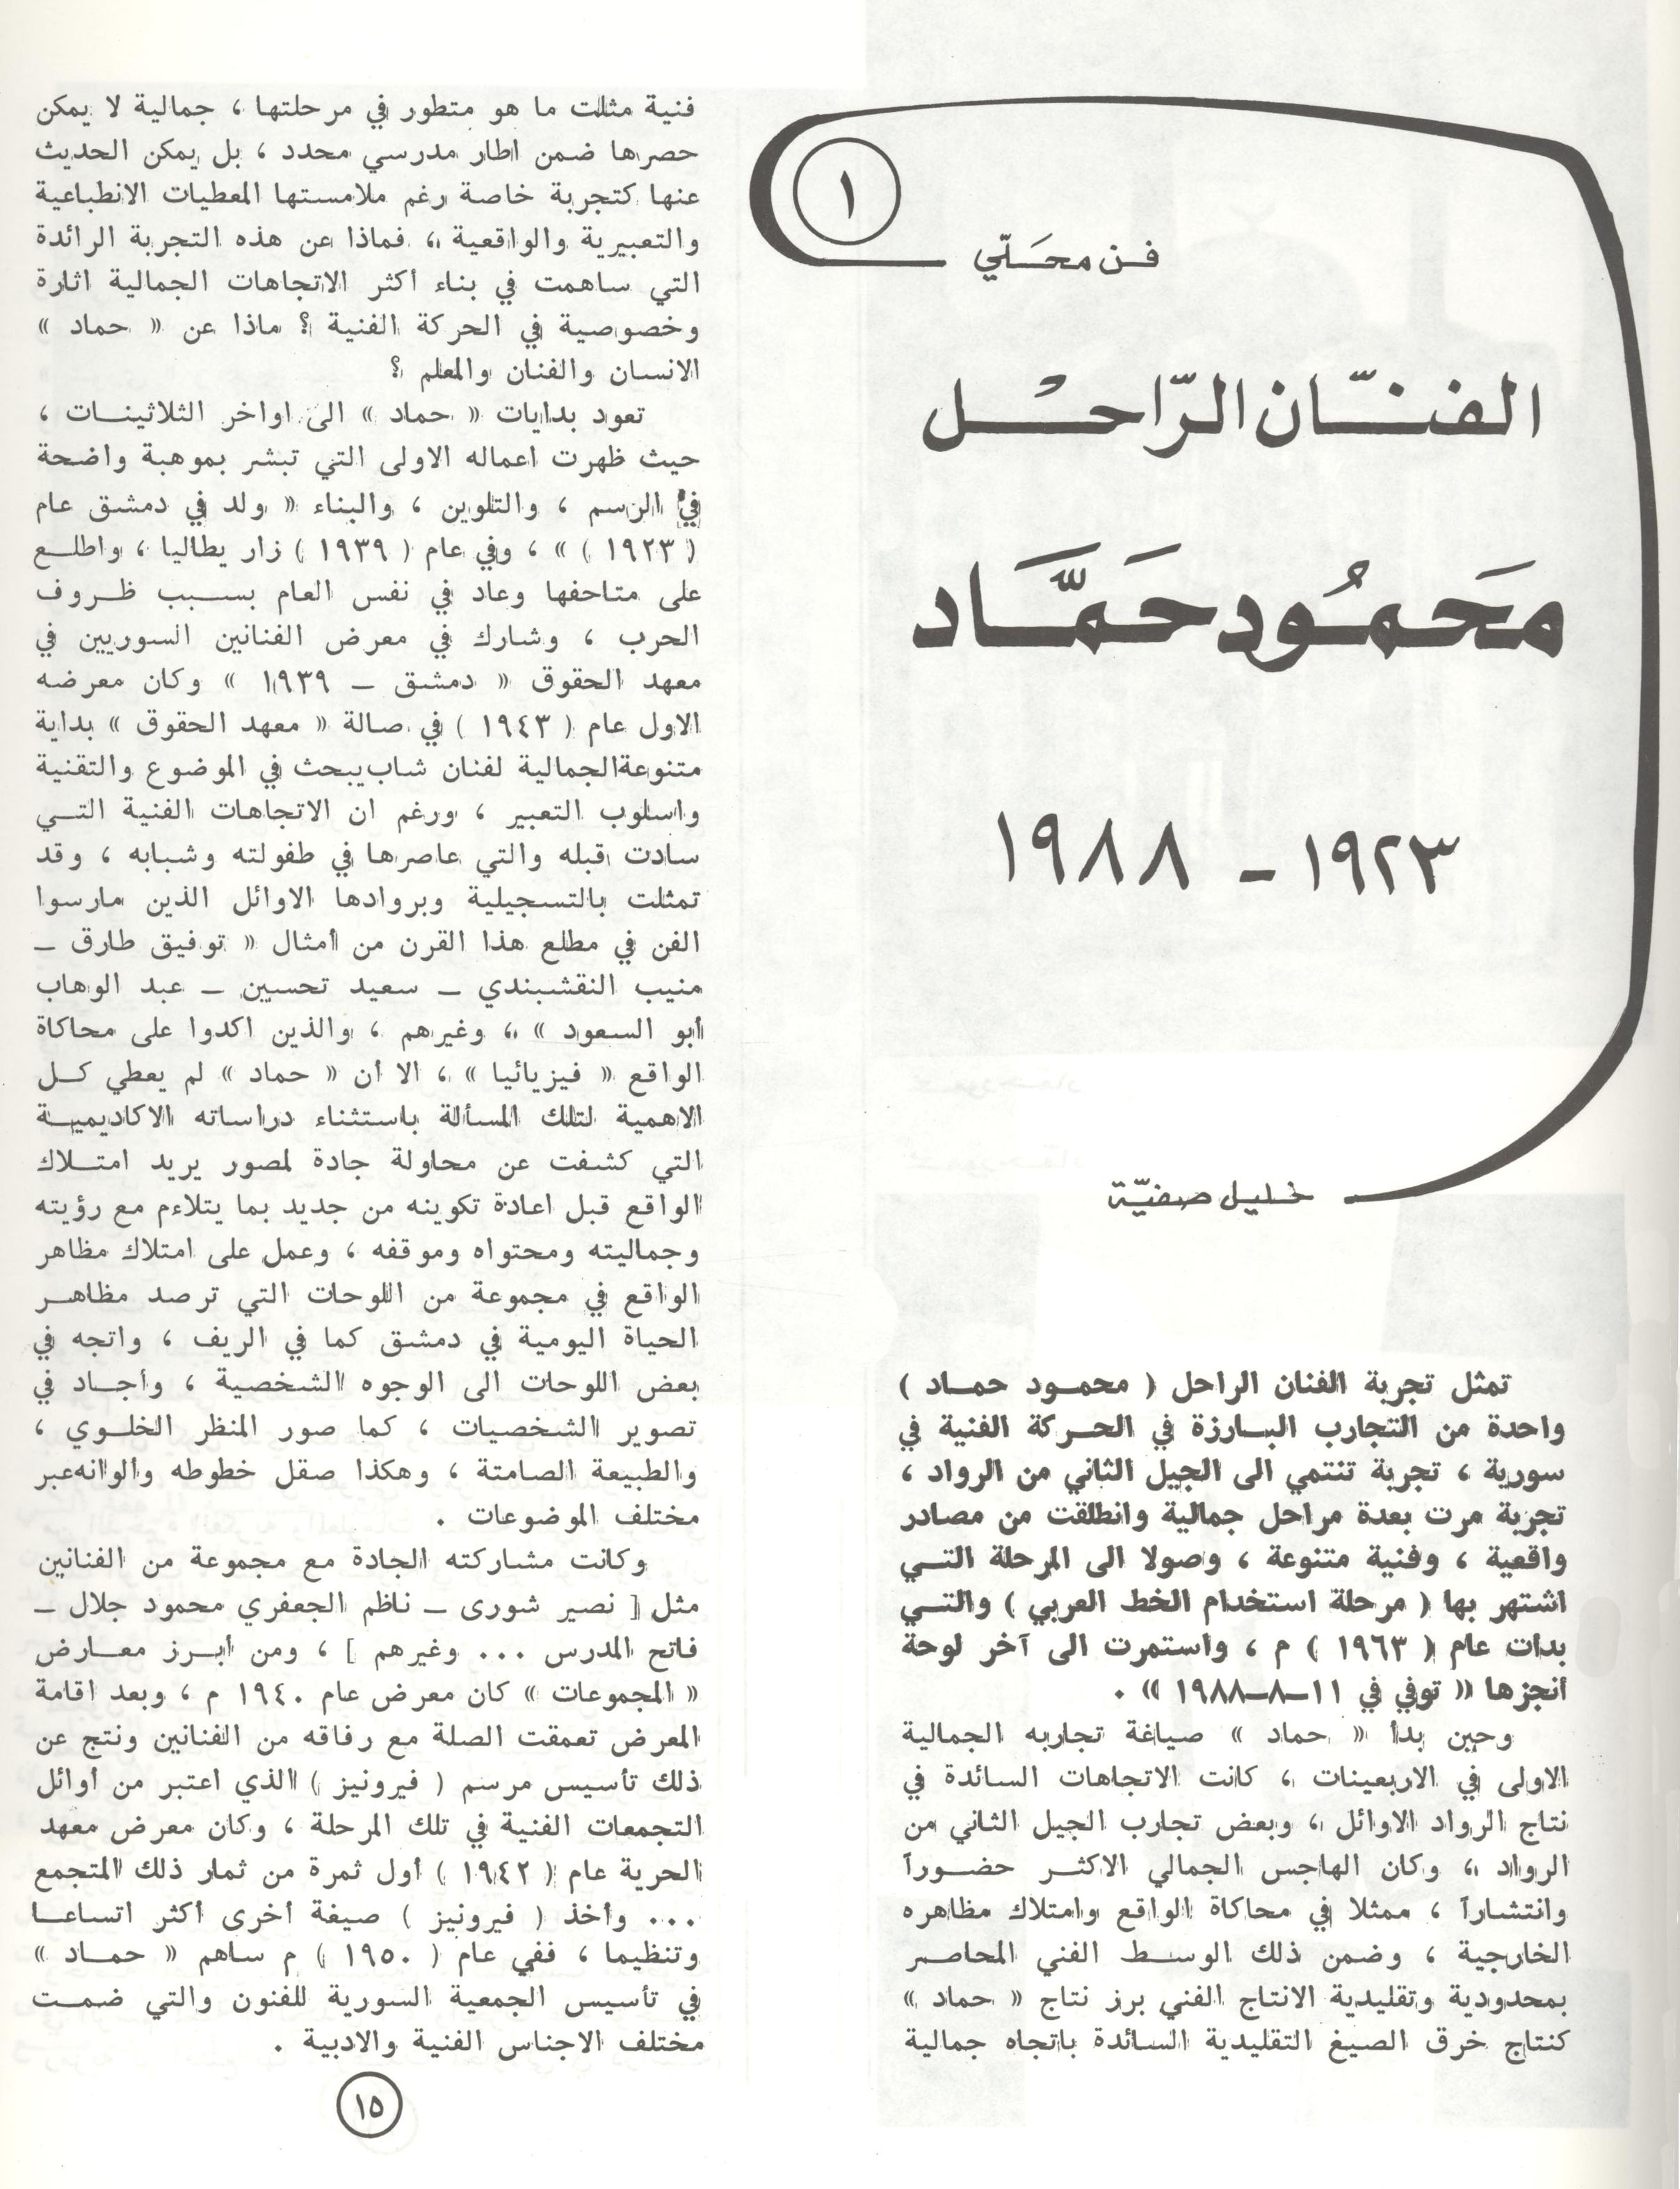 ١
فن محلّي
الفنّان الرّاحل
محَمُود حَمَّاد
١٩٢٣ - ١٩٨٨
خليل صفيّة
تمثل تجربة الفنان الراحل ( محمود حماد )
واحدة من التجارب البارزة في الحركة الفنية في
سورية ، تجربة تنتمي الى الجيل الثاني من الرواد ،
تجربة مرت بعدة مراحل جمالية وانطلقت من مصادر
واقعية ، وفنية متنوعة ، وصولا الى المرحلة التي
اشتهر بها ( مرحلة استخدام الخط العربي ) والتي
بدات عام ( ١٩٦٣ ) م ، واستمرت الى آخر لوحة
أنجزها « توفي في ١١-٨-١٩٨٨ » .
وحين بدأ « حماد » صياغة تجاربه الجمالية
الاولى في الاربعينات ، كانت الاتجاهات السائدة في
نتاج الرواد الاوائل ، وبعض تجارب الجيل الثاني من
الرواد ، وكان الهاجس الجمالي الاكثر حضوراً
وانتشاراً ، ممثلا في محاكاة الواقع وامتلاك مظاهره
الخارجية ، وضمن ذلك الوسط الفني المحاصر
بمحدودية وتقليدية الانتاج الفني برز نتاج « حماد »
كنتاج خرق الصيغ التقليدية السائدة باتجاه جمالية
فنية مثلت ما هو متطور في مرحلتها ، جمالية لا يمكن
حصرها ضمن اطار مدرسي محدد ، بل يمكن الحديث
عنها كتجربة خاصة رغم ملامستها المعطيات الانطباعية
والتعبيرية والواقعية ، فماذا عن هذه التجربة الرائدة
التي ساهمت في بناء أكثر الاتجاهات الجمالية اثارة
وخصوصية في الحركة الفنية ؟ ماذا عن « حماد »
الانسان والفنان والمعلم ؟
تعود بدايات « حماد » الى اواخر الثلاثينات ،
حيث ظهرت اعماله الاولى التي تبشر بموهبة واضحة
في الرسم ، والتلوين ، والبناء « ولد في دمشق عام
( ١٩٢٣ ) » ، وفي عام ( ١٩٣٩ ) زار يطاليا ، واطلع
على متاحفها وعاد في نفس العام بسبب ظروف
الحرب ، وشارك في معرض الفنانين السوريين في
معهد الحقوق « دمشق – ١٩٣٩ » وكان معرضه
الاول عام ( ١٩٤٣ ) في صالة « معهد الحقوق » بداية
متنوعة الجمالية لفنان شاب يبحث في الموضوع والتقنية
واسلوب التعبير ، ورغم ان الاتجاهات الفنية التي
سادت قبله والتي عاصرها في طفولته وشبابه ، وقد
تمثلت بالتسجيلية وبروادها الاوائل الذين مارسوا
الفن في مطلع هذا القرن من أمثال « توفيق طارق –
منيب النقشبندي – سعيد تحسين – عبد الوهاب
أبو السعود » ، وغيرهم ، والذين اكدوا على محاكاة
الواقع « فيزيائيا » ، الا أن « حماد » لم يعطي كل
الاهمية لتلك المسألة باستثناء دراساته الاكاديمية
التي كشفت عن محاولة جادة لمصور يريد امتلاك
الواقع قبل اعادة تكوينه من جديد بما يتلاءم مع رؤيته
وجماليته ومحتواه وموقفه ، وعمل على امتلاك مظاهر
الواقع في مجموعة من اللوحات التي ترصد مظاهر
الحياة اليومية في دمشق كما في الريف ، واتجه في
بعض اللوحات الى الوجوه الشخصية ، وأجاد في
تصوير الشخصيات ، كما صور المنظر الخلوي ،
والطبيعة الصامتة ، وهكذا صقل خطوطه والوانه عبر
مختلف الموضوعات .
وكانت مشاركته الجادة مع مجموعة من الفنانين
مثل [ نصير شورى – ناظم الجعفري محمود جلال –
فاتح المدرس ... وغيرهم ] ، ومن أبرز معارض
« المجموعات » كان معرض عام ١٩٤٠ م ، وبعد اقامة
المعرض تعمقت الصلة مع رفاقه من الفنانين ونتج عن
ذلك تأسيس مرسم ( فيرونيز ) الذي اعتبر من أوائل
التجمعات الفنية في تلك المرحلة ، وكان معرض معهد
الحرية عام ( ١٩٤٢ ) أول ثمرة من ثمار ذلك المتجمع
... وأخذ ( فيرونيز ) صيغة أخرى أكثر اتساعا
وتنظيما ، ففي عام ( ١٩٥٠ ) م ساهم « حماد »
في تأسيس الجمعية السورية للفنون والتي ضمت
مختلف الاجناس الفنية والادبية .
١٥